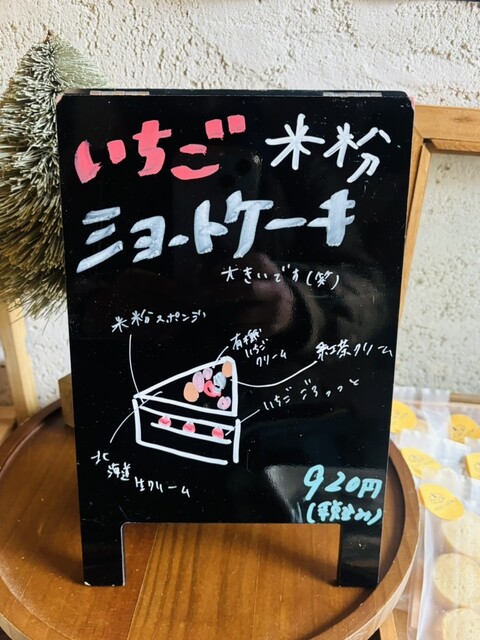 いちご 米粉
ショートケーキ
大きいです(笑)
米粉スポンジ
有機
いちご
クリーム
紅茶クリーム
いちごごろっっと
北
海道
生クリーム
920円
(税込み)